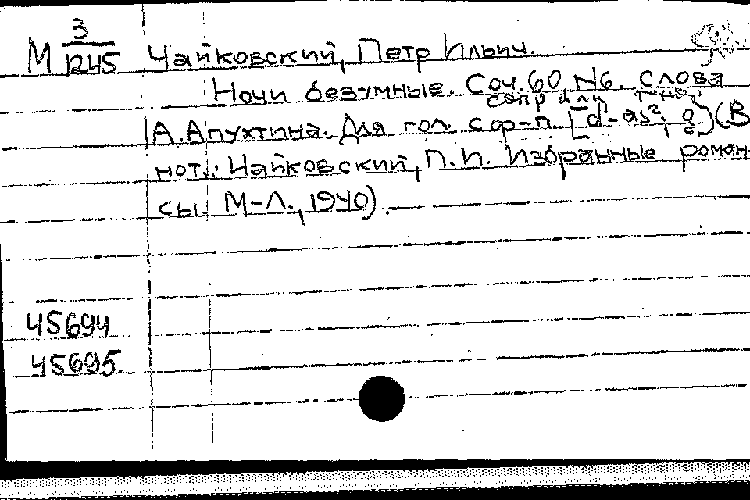 М 3/1245 Чайковский, Петр Ильич.
Ночи безумные. Соч. 60 N6. Слова
А. Апухтина. Для гол. с ф-п. [d-as²; g] (В
сопр или тенор
нот.: Чайковский, П.И. Избранные роман-
сы. М-Л., 1940).
45694
45695